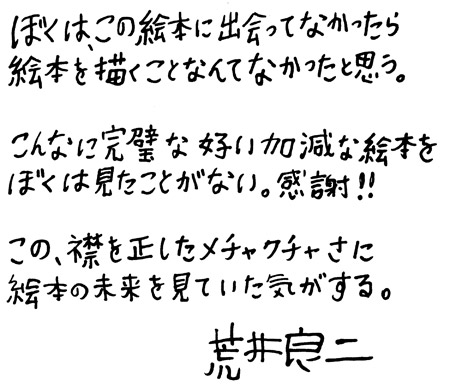 ぼくは、この絵本に出会ってなかったら
絵本を描くことなんてなかったと思う。
こんなに完璧な好い加減な絵本を
ぼくは見たことがない。感謝!!
この、襟を正したメチャクチャさに
絵本の未来を見ていた気がする。
荒井良二